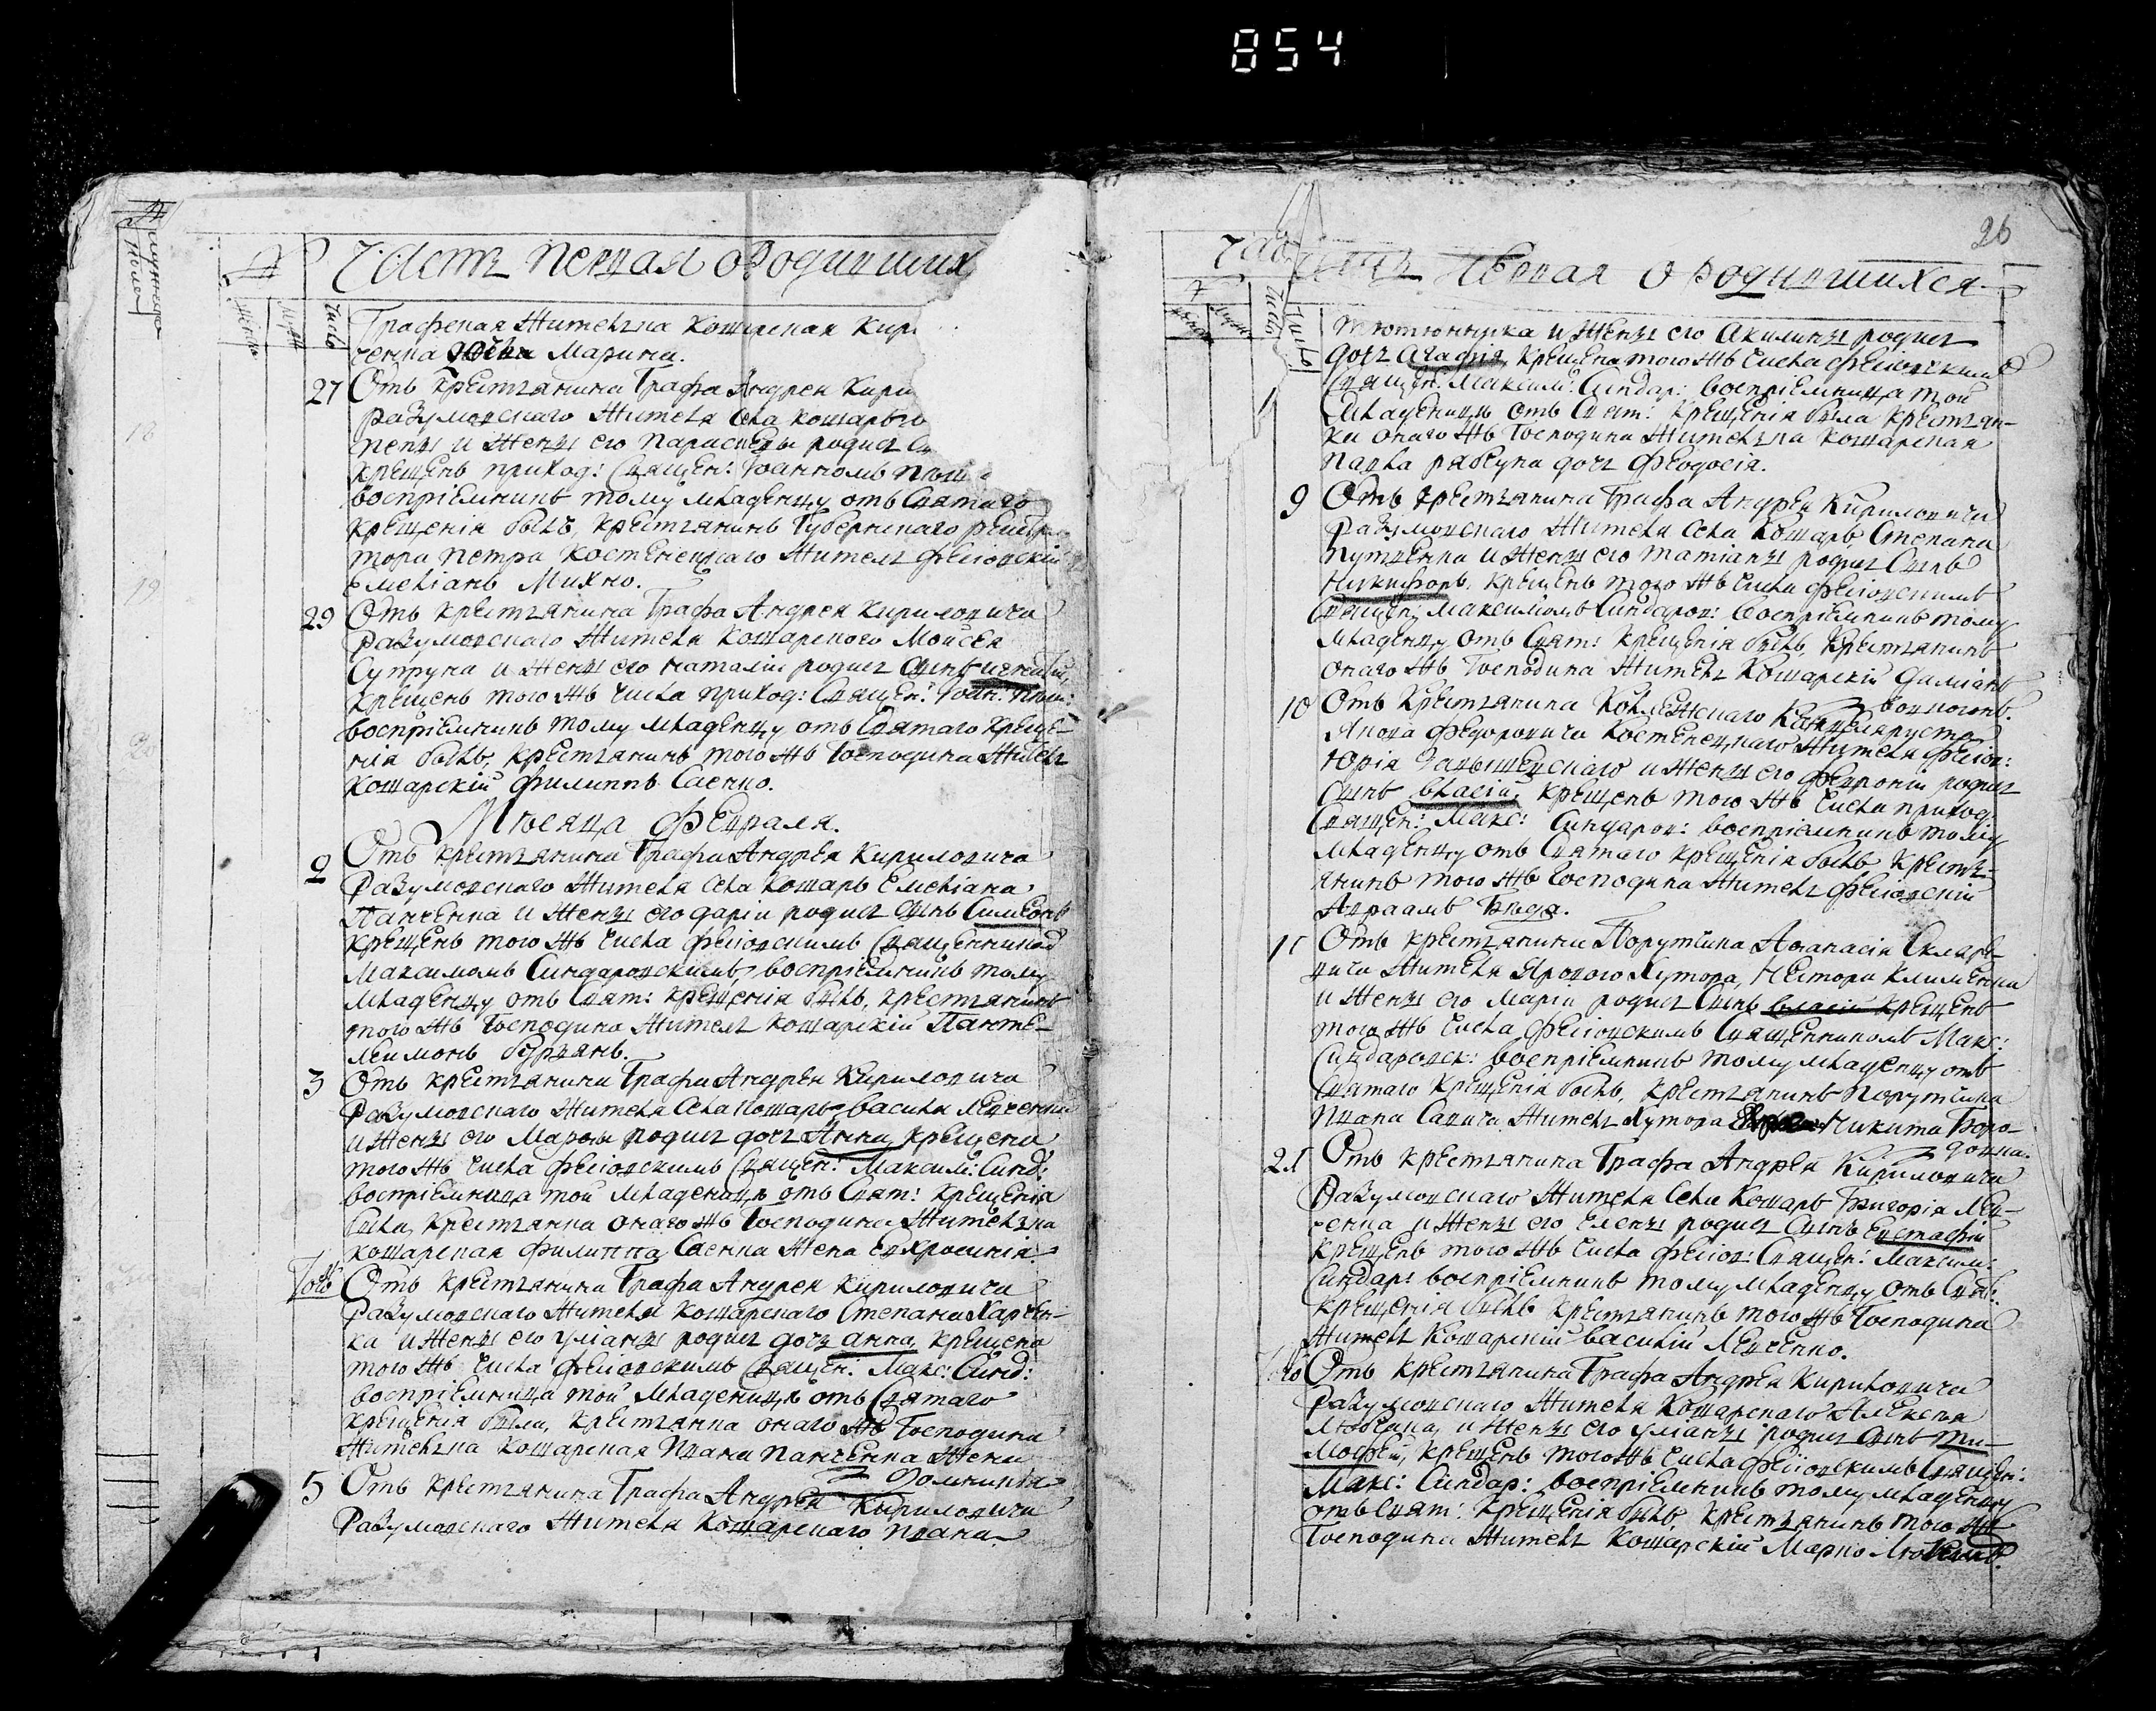 854
Часть первая о родивших
Число
Графская жителька кошарская Кири
ченка дочка Марина.
27 Отъ крестянина Графа Андрея Кири
Разумовского жителя села кошаръ
и жены его Параскевы родися
крещенъ приход: Священ: Іоанномъ
воспріемникъ тому младенцу отъ Святаго
крещенія былъ, крестянинъ Губернского регистра
тора Петра Костенецкаго житель фесговскій
Емеліанъ Михно.
29 Отъ крестянина Графа Андрея Кириловича
Разумовского жителя кошарского Мойсея
Супруна и жены его Наталіи родися Сынъ
крещенъ того жъ числа приход: Священ: Іоан:
воспріемникъ тому младенцу отъ Святаго креще-
нія былъ, крестянинъ того жъ Господина житель
кошарскій Филиппъ Саенко.
Месяца Февраля.
2 Отъ крестянина Графа Андрея Кириловича
Разумовского жителя села Кошаръ Емеліана
Панченка и жены его Даріи родися Сынъ Симеонъ
крещенъ того жъ числа фесговскимъ Священникомъ
Максимомъ Синдаровскимъ, воспріемникъ тому
младенцу отъ Свят: крещенія былъ, крестянинъ
того жъ Господина житель кошарскій Панте-
леимонъ
3 Отъ крестянина Графа Андрея Кириловича
Разумовского жителя села кошаръ Василя Левченка
и жены его Марфы родися дочъ Анна, крещена
того жъ числа фесговскимъ Священ: Максим: Синд:
воспріемница той младеницѣ отъ Свят: крещенія
была, крестянка онаго жъ Господина жителька
кошарская Филиппа Саенка жена Евхросинія.
Тогожъ Отъ крестянина Графа Андрея Кириловича
Разумовского жителя кошарского Степана Харчен-
ка и жены его Уліаны родися дочъ Анна, крещена
того жъ числа фесговскимъ Священ: Макс: Синд:
воспріемница той младеницѣ отъ Святаго
крещенія была, крестянка онаго жъ Господина
жителька кошарская Ивана Панченка жена
Домникія
5 Отъ крестянина Графа Андрея Кириловича
Разумовского жителя кошарского Ивана
26
Часть Первая о Родившихся
Число
Тютюнника и жены его Акилины родися
дочъ Агафія, крещена того жъ числа фесговскимъ
Священ: Максим: Синдар: воспріемница той
младеницѣ отъ Свят: крещенія была крестян-
ка онаго жъ Господина жителька кошарская
Павла Рябуна дочъ Феодосія.
9 Отъ крестянина Графа Андрея Кириловича
Разумовского жителя села Кошаръ Степана
и жены его Татіаны родися Сынъ
Никифоръ, крещенъ того жъ числа фесговскимъ
Священ: Максимомъ Синдаров: воспріемникъ тому
младенцу отъ Свят: крещенія былъ, крестянинъ
онаго жъ Господина житель Кошарскій Даміанъ
10 Отъ крестянина Колежского Канцеляриста
Якова Федоровича Костенецкаго жителя фесгов:
Юрія и жены его Февроніи родися
Сынъ Власій, крещенъ того жъ числа приход:
Священ: Макс: Синдаров: воспріемникъ тому
младенцу отъ Святаго крещенія былъ крестя-
янинъ того жъ Господина житель фесговскій
Авраамъ
11 Отъ крестянина Порутчика Афанасія Скляре-
вича жителя Ярового Хутора, Нестора Клименка
и жены его Маріи родися Сынъ Власій крещенъ
того жъ числа фесговскимъ Священникомъ Макс:
Синдаровск: воспріемникъ тому младенцу отъ
Святаго крещенія былъ, крестянинъ Порутчика
Ивана Савича житель Хутора Никита Боро-
21 Отъ крестянина Графа Андрея Кириловича
Разумовского жителя села Кошаръ Григорія Лев-
ченка и жены его Елены родися Сынъ Евстафій
крещенъ того жъ числа фесгов: Священ: Максим:
Синдар: воспріемникъ тому младенцу отъ Свят:
крещенія былъ крестянинъ того жъ Господина
житель Кошарскій Василій Левченко.
Тогожъ Отъ крестянина Графа Андрея Кириловича
Разумовского жителя Кошарского Алексея
и жены его Уліаны родися Сынъ Ти-
мофей, крещенъ того жъ числа фесговскимъ Священ:
Макс: Синдар: воспріемникъ тому младенцу
отъ Свят: крещенія былъ, крестянинъ того жъ
Господина житель Кошарскій Марко